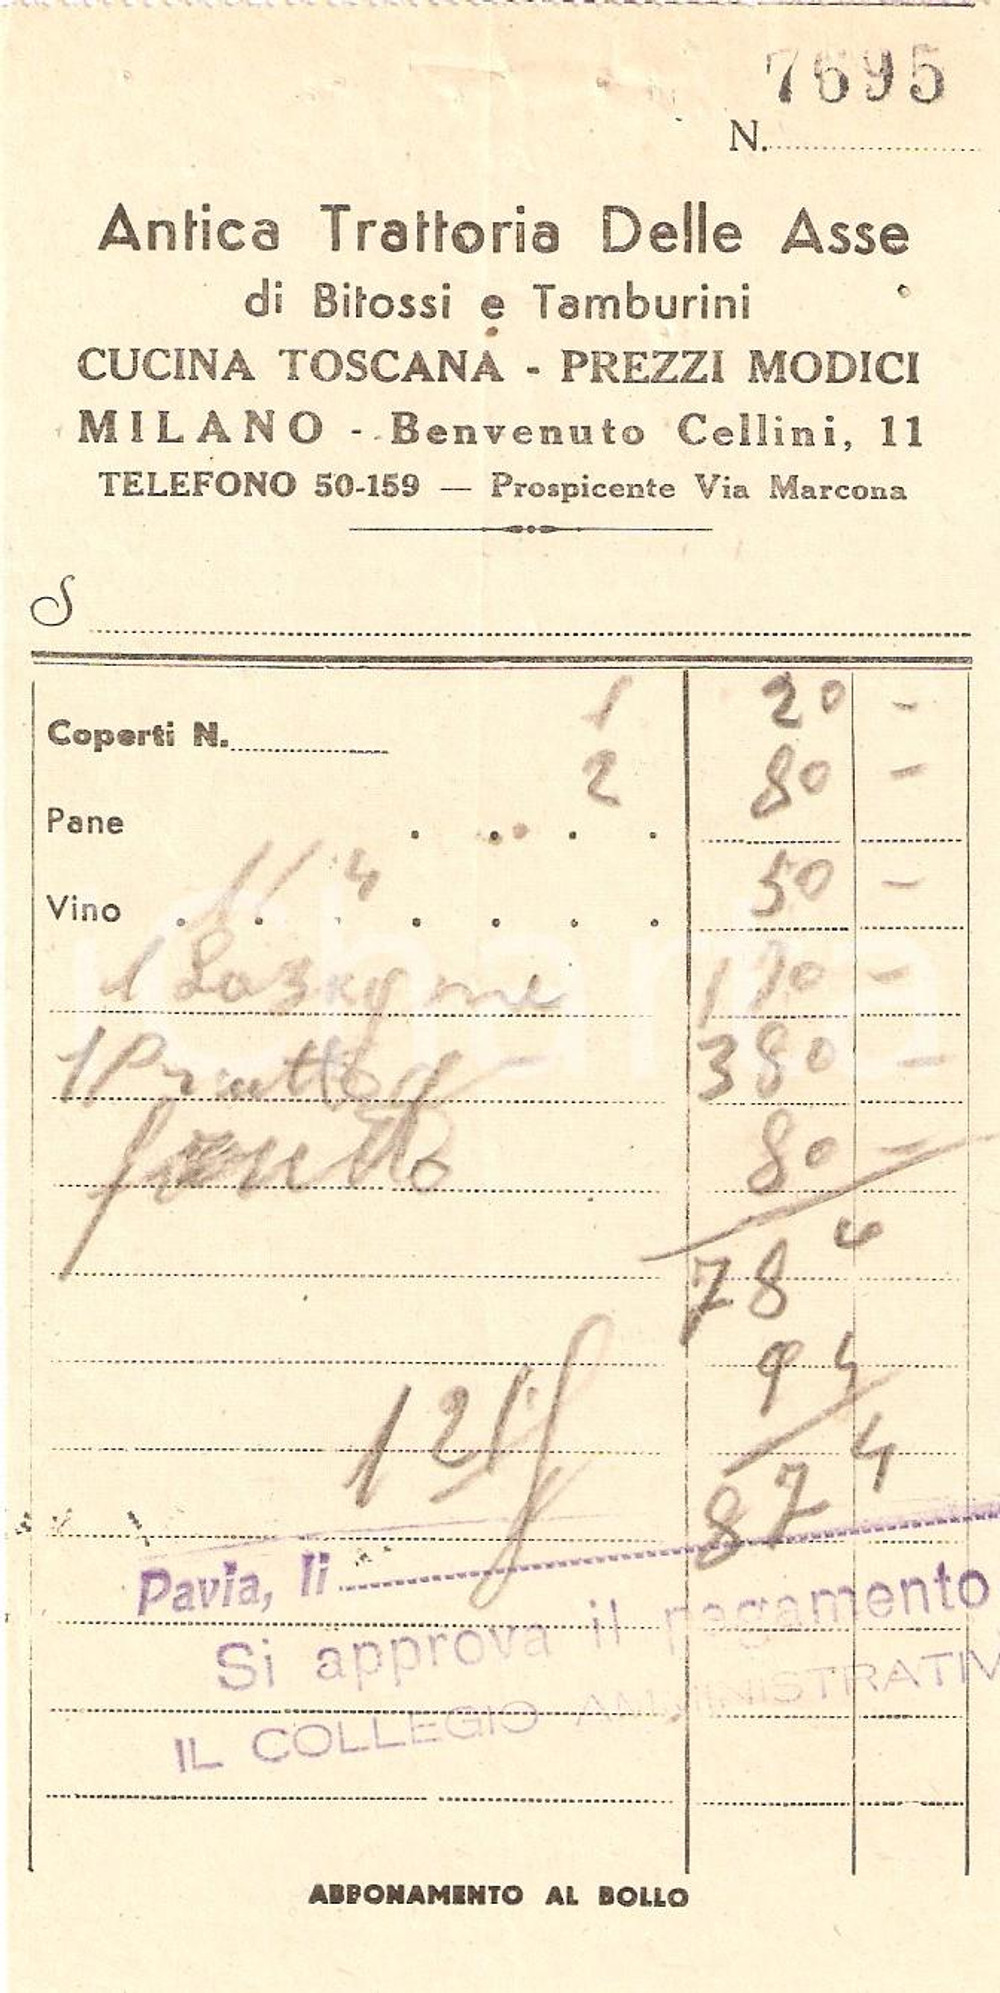 7695
N.
Antica Trattoria Delle Asse
di Bitossi e Tamburini
CUCINA TOSCANA - PREZZI MODICI
MILANO - Benvenuto Cellini, 11
TELEFONO 50-159 — Prospicente Via Marcona
S
Coperti N. 1 20 -
Pane 2 80 -
Vino 1/4 50 -
1 Lasagne 170 -
1 380 -
80 -
78 4
9 4
12% 87 4
Pavia, li
Si approva il pagamento
IL COLLEGIO AMMINISTRATIV
ABBONAMENTO AL BOLLO